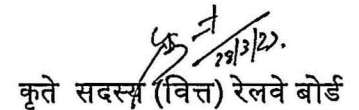 28/3/22.
कृते सदस्य (वित्त) रेलवे बोर्ड